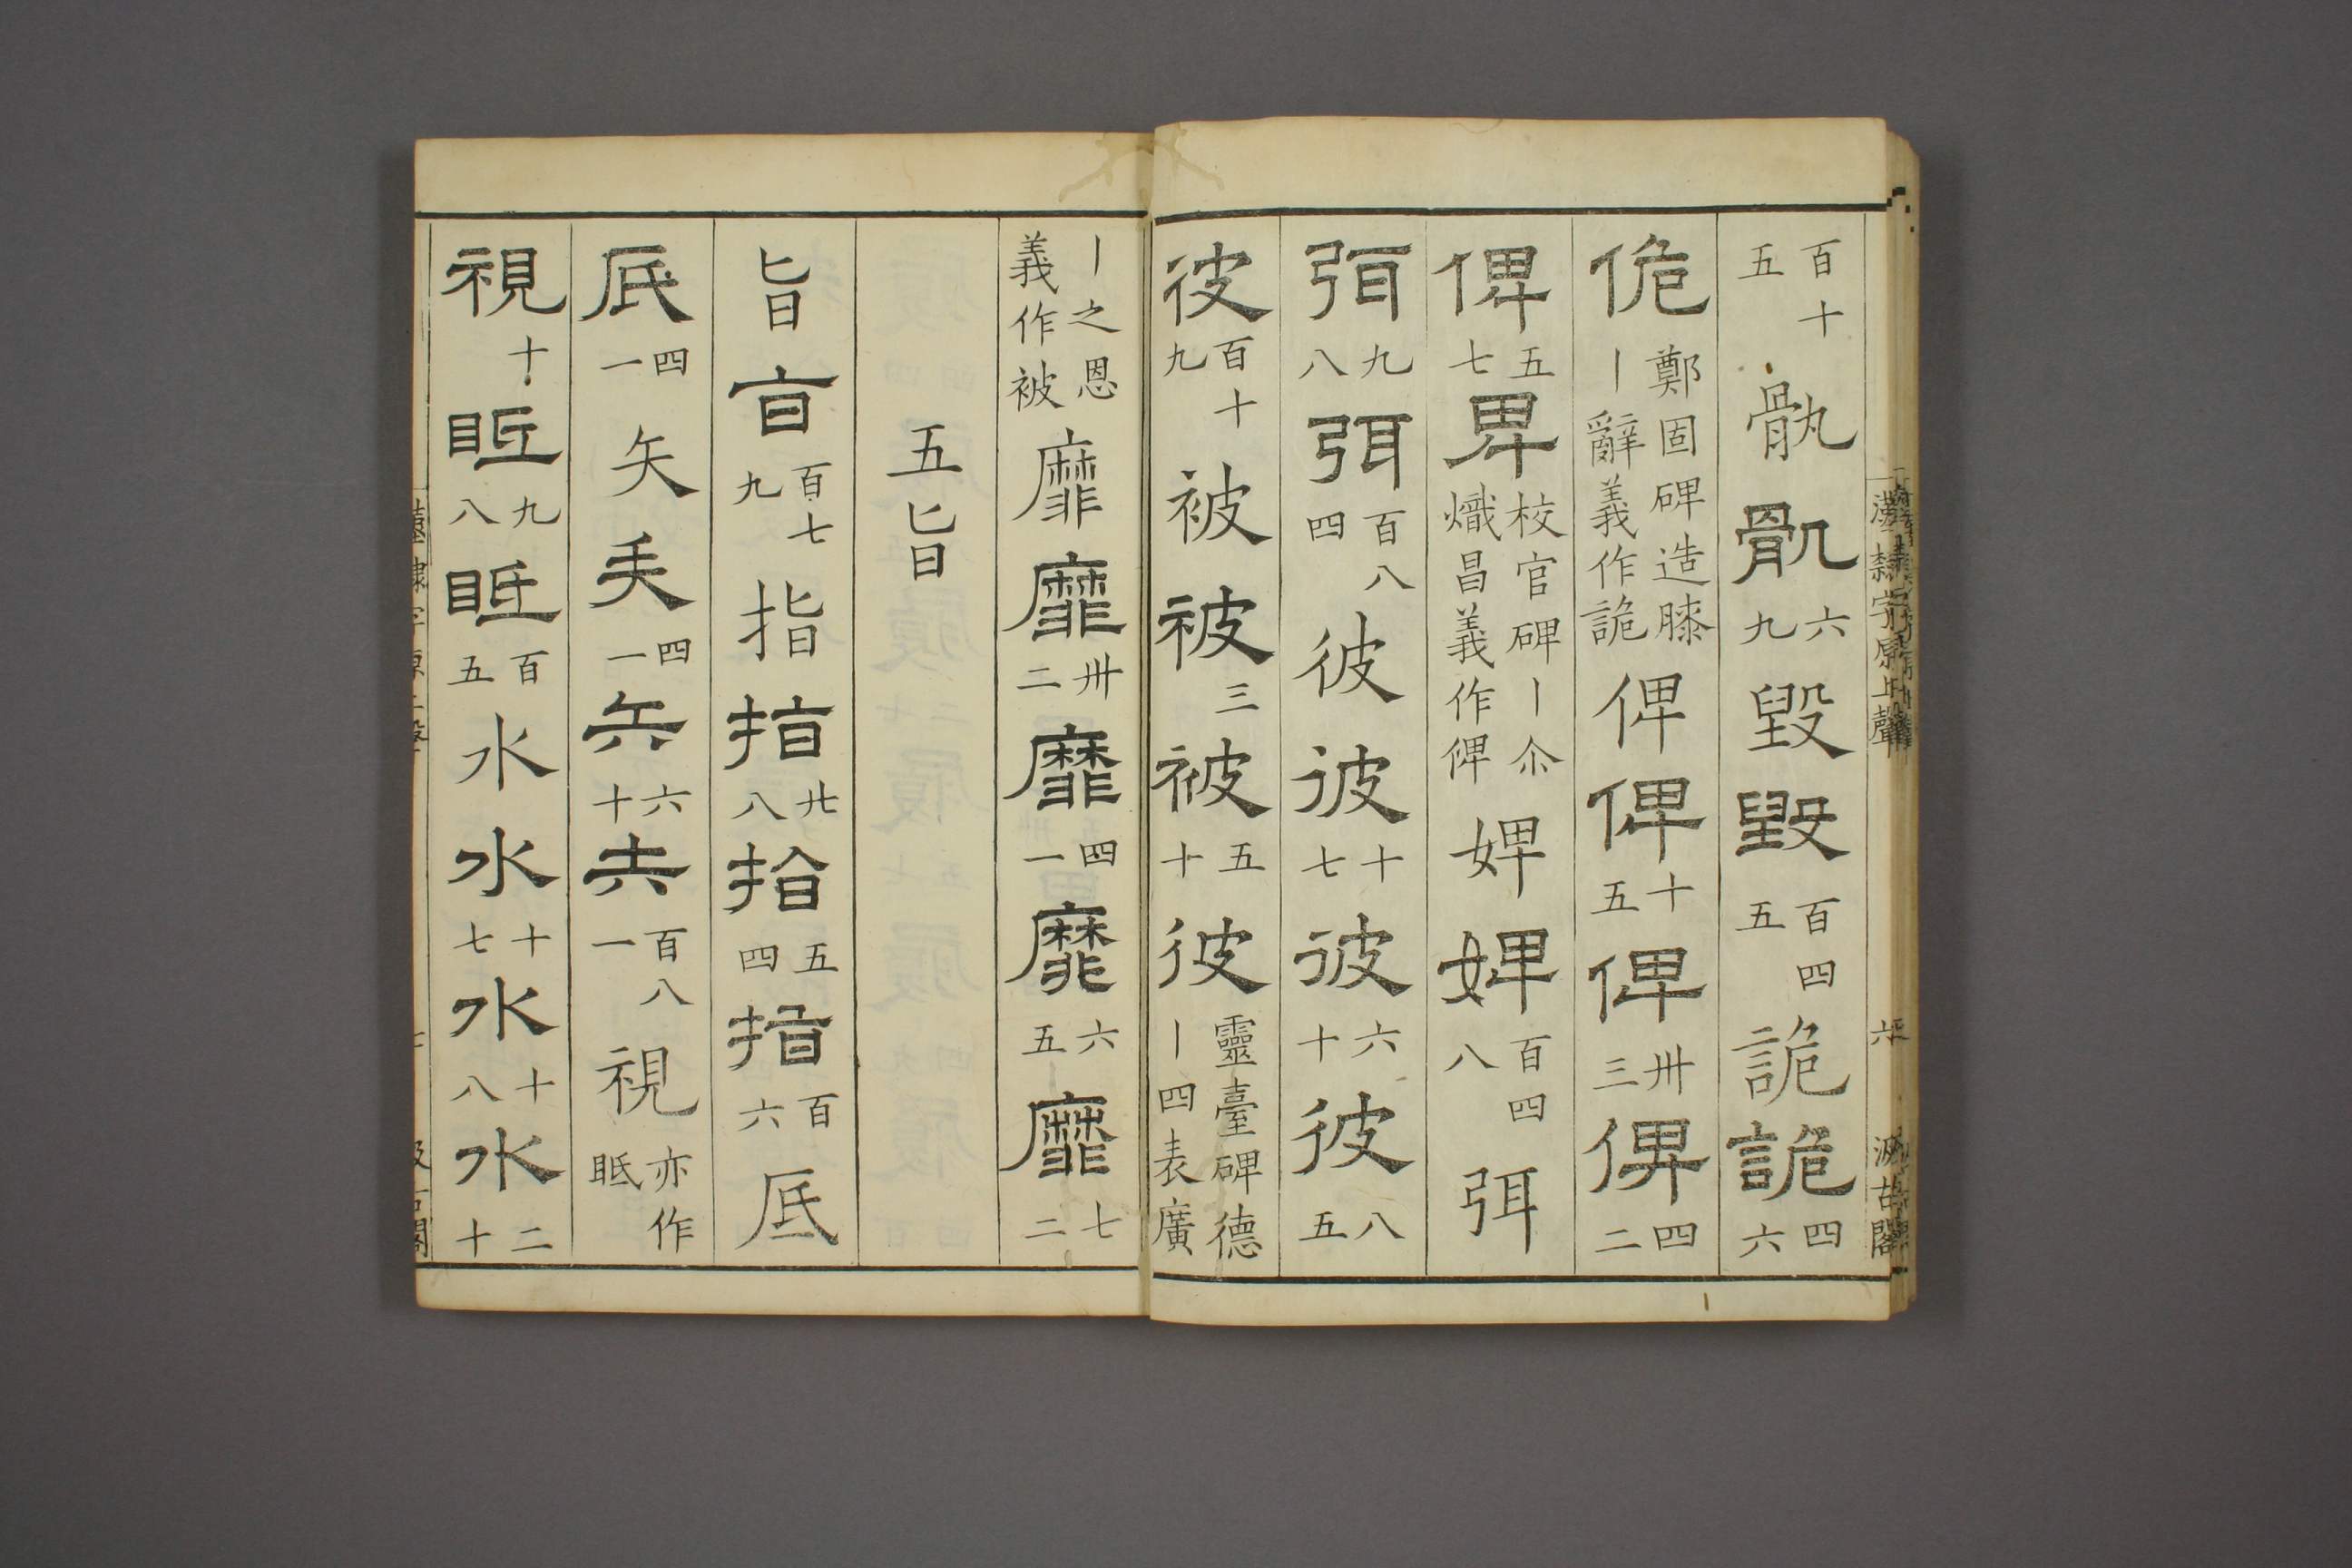 百十五骩骫六九毀毀百四五詭詭四六
佹鄭固碑造膝丨辭義作詭俾俾十五俾卅三俾四二
俾五七卑校官碑丨尒熾昌義作俾婢婢百四八弭
弭九八弭百八四彼彼十七彼六十彼八五
彼百十九被被三被五十彼靈臺碑德丨四表廣
丨之恩義作被靡靡卅二靡四一靡六五靡七二
五旨
旨旨百七九指指廿八指五四指百六底
底四一矢矢四一矢六十矢百八一視亦作眡
視十眡九八眡百五水水十七水十八水二十
漢隸字原上聲
汲古閣